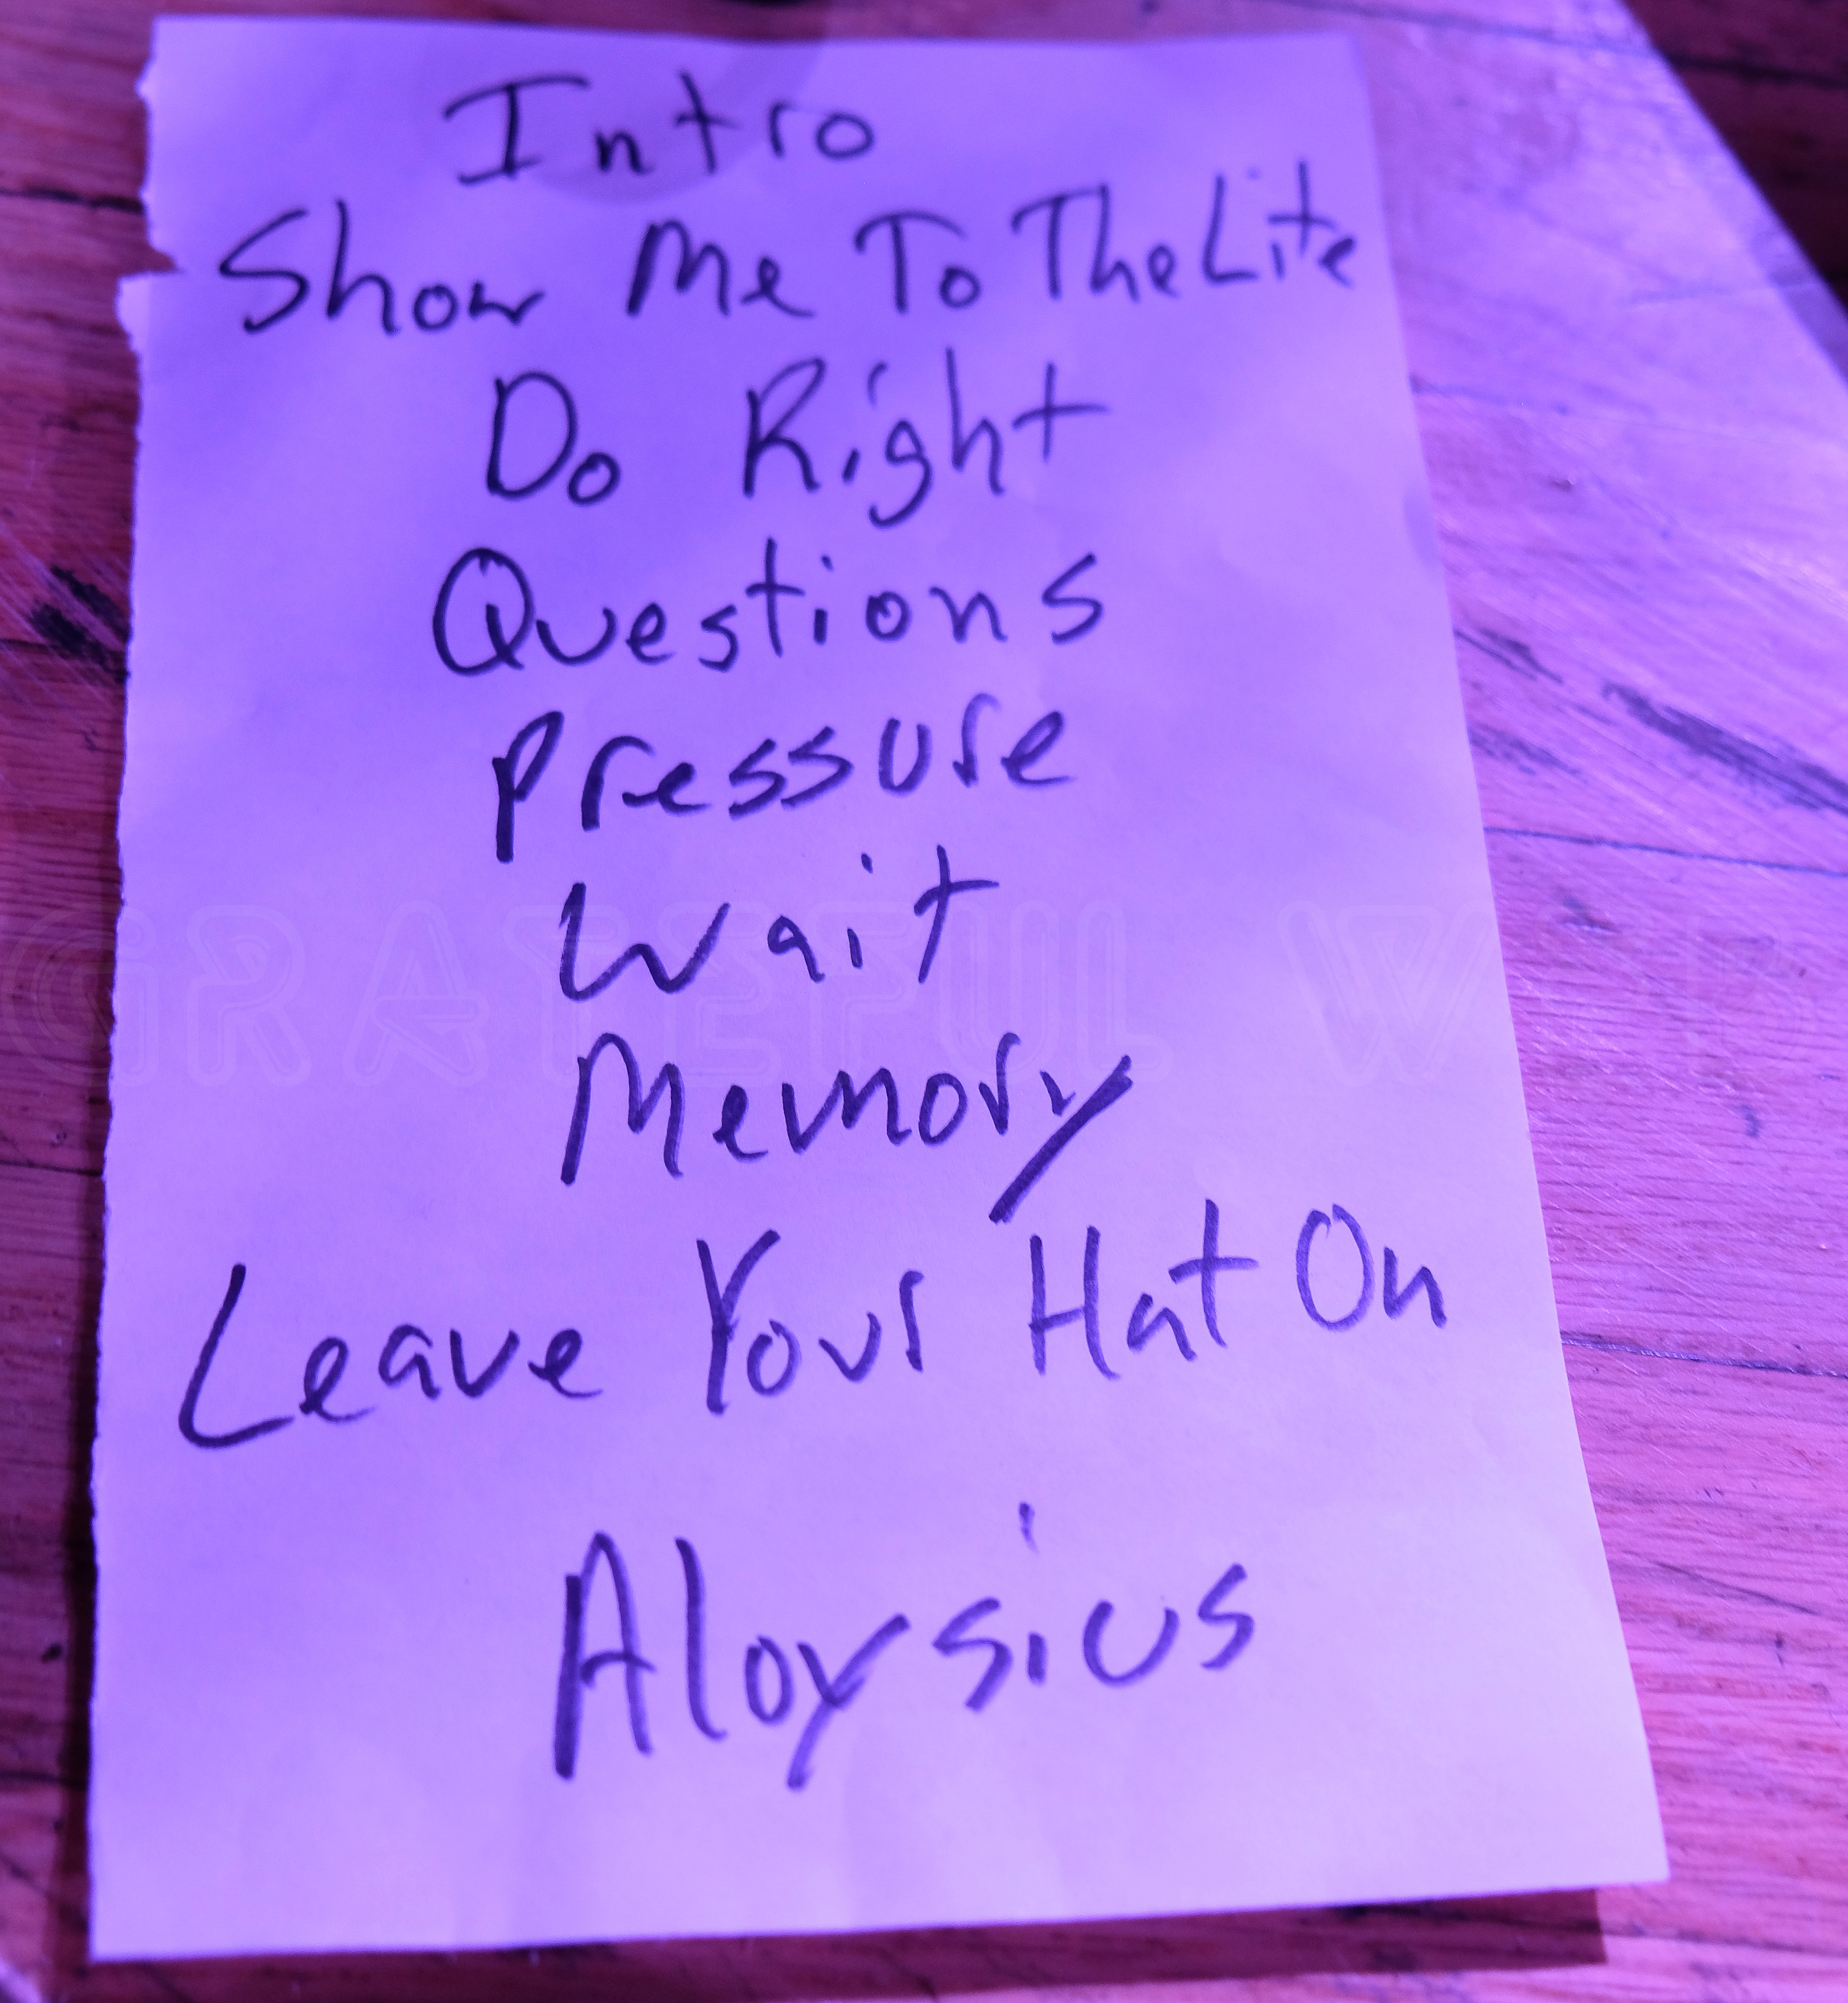 Intro
Show Me To The Lite
Do Right
Questions
Pressure
Wait
GRATEFUL WEB
Memory
Leave Your Hat On
Aloysius